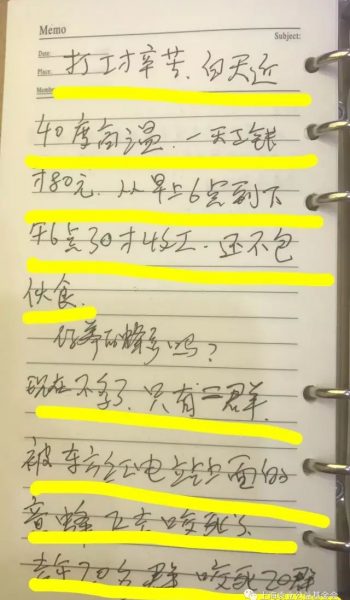 Memo
Subject:
Date:
Place:
打工才辛苦、白天近
40度高温、一天工钱
才80元、从早上6点到下
午6点30才收工、还不包
伙食、
你养的蜂多吗?
现在不多了、只有二群、
被东方红电站上面的
蜂 咬死
去年70多群 咬死20群
基金会